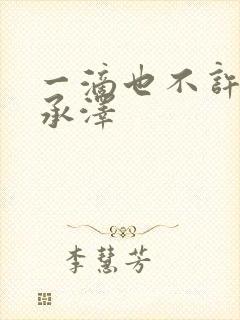 一滴也不許
承澤
李慧芳